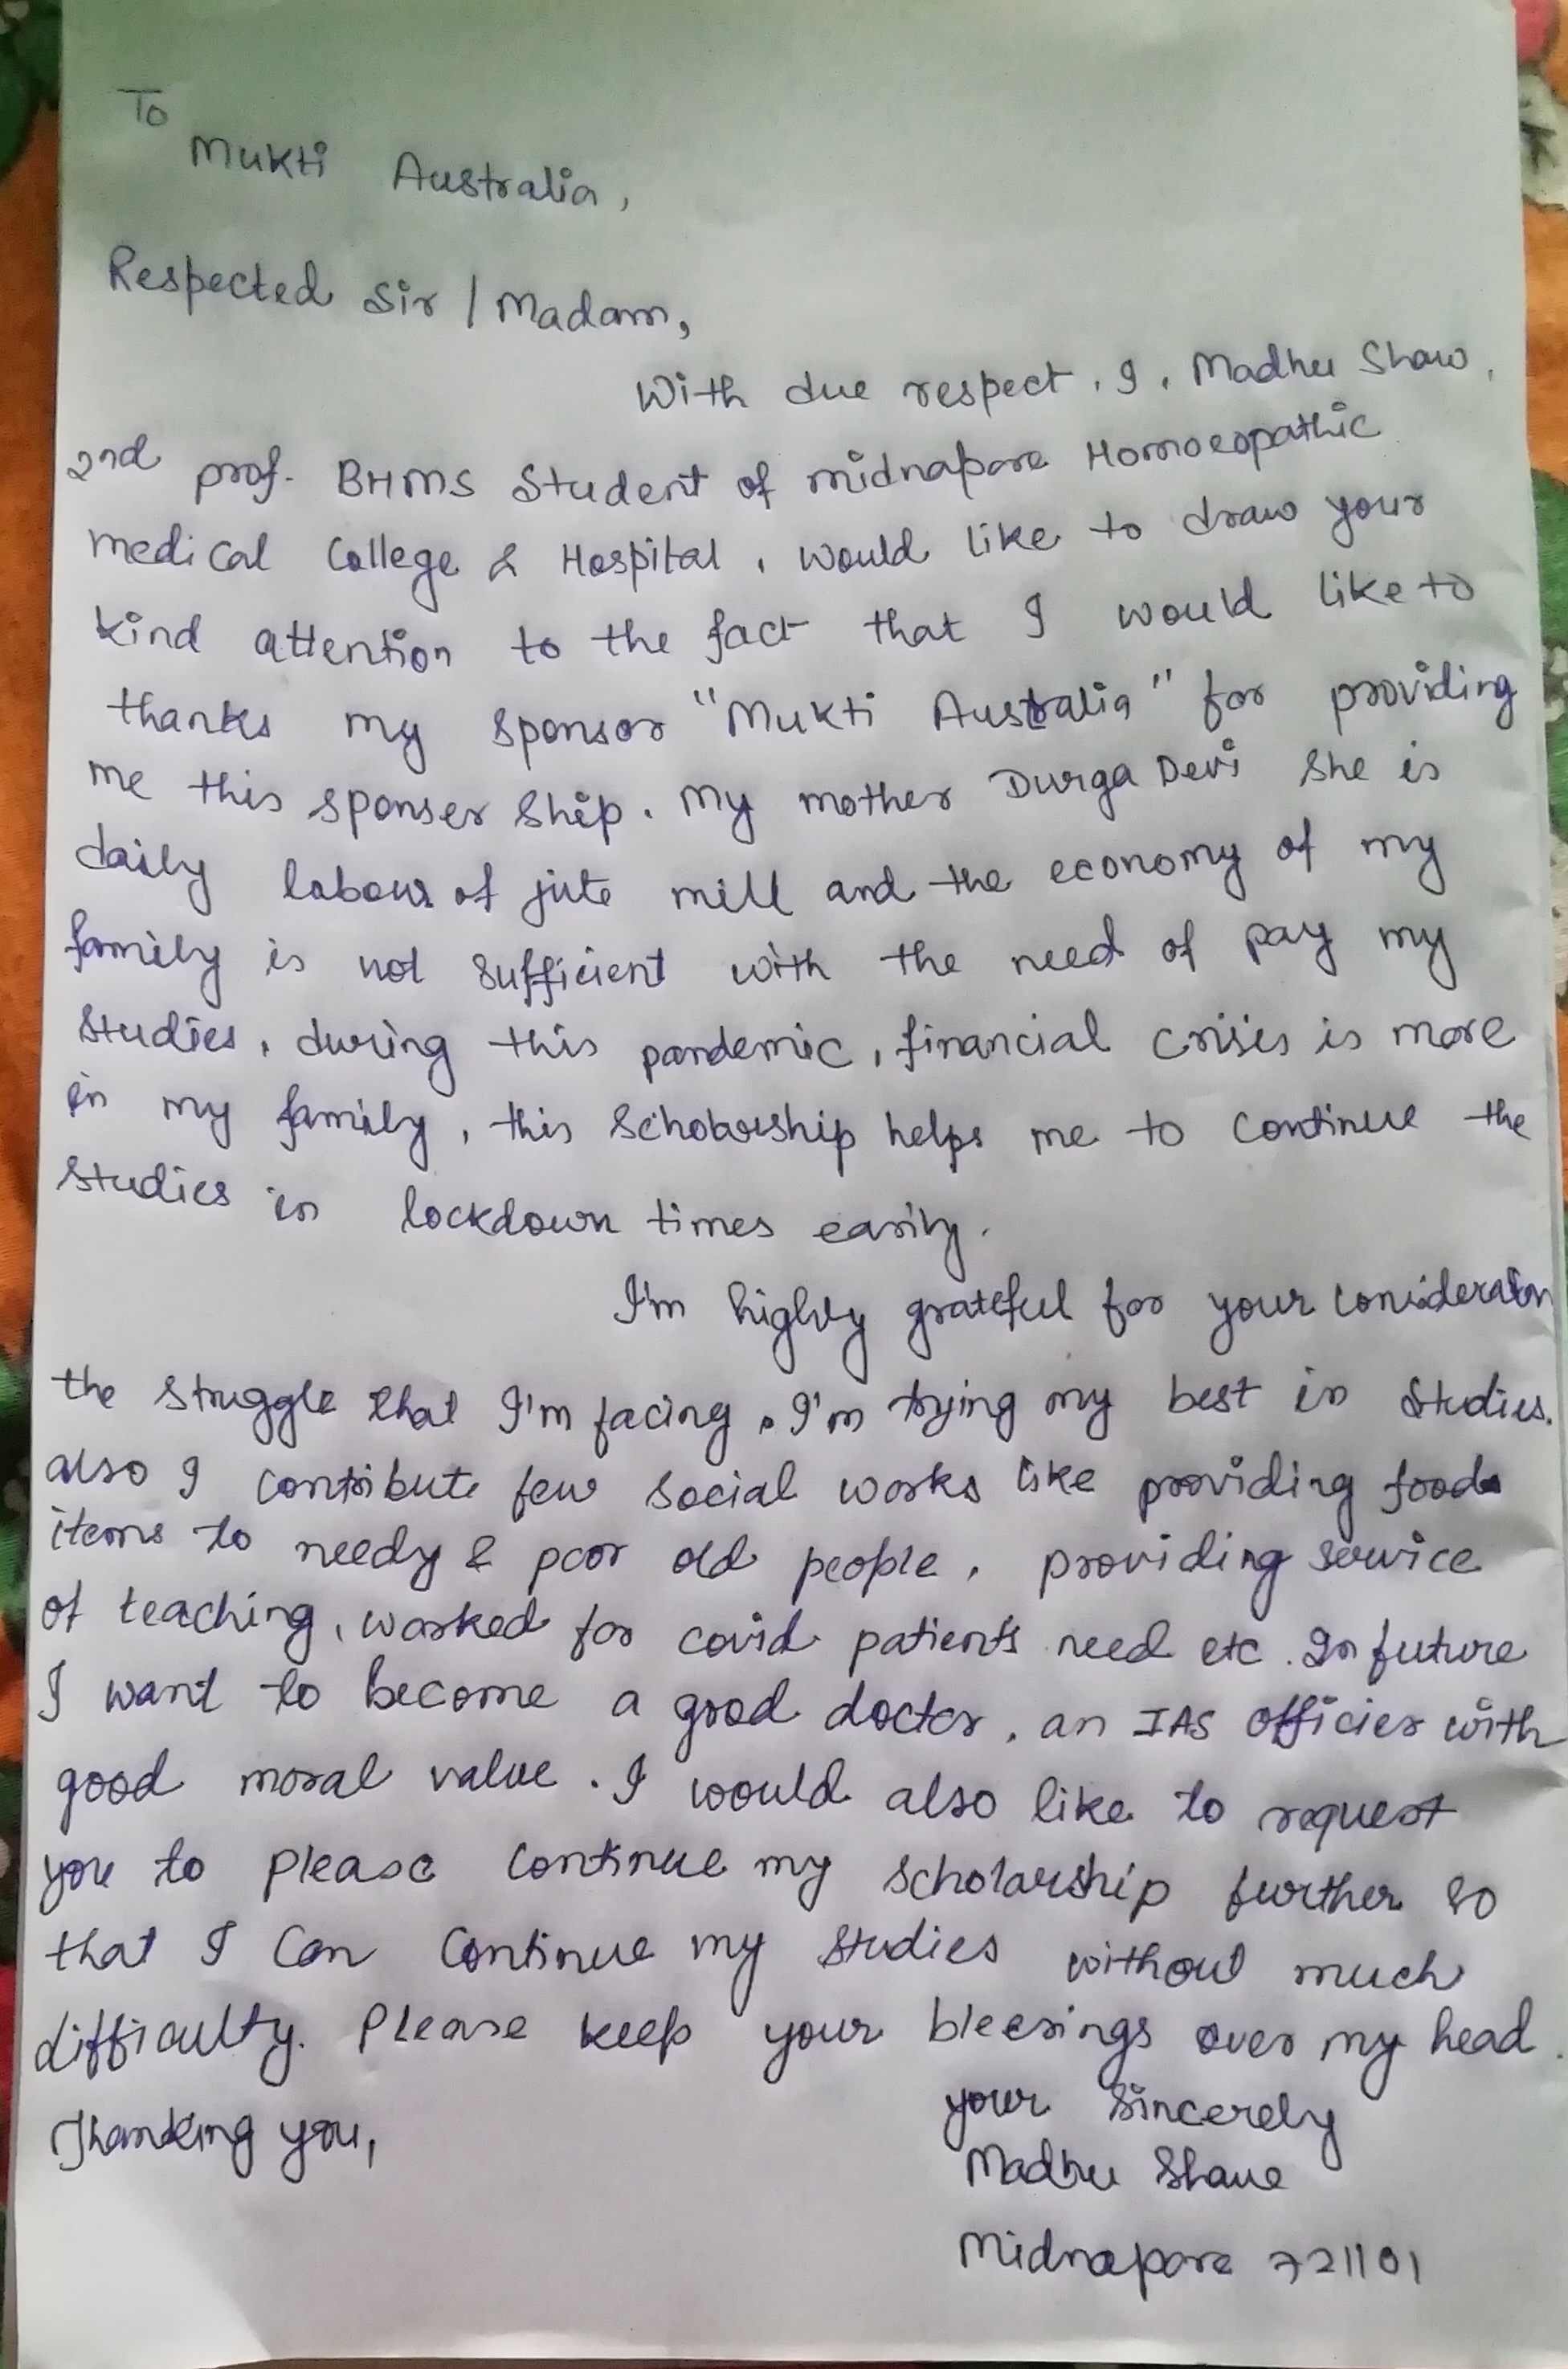 To
Mukti Australia,
Respected Sir / Madam,
With due respect, I, Madhu Shaw,
2nd prof. BHMS Student of midnapore Homoeopathic
medical College & Hospital, would like to draw your
kind attention to the fact that I would like to
thanks my sponsor "Mukti Australia" for providing
me this sponser ship. My mother Durga Devi she is
daily labour of jute mill and the economy of my
family is not sufficient with the need of pay my
studies, during this pandemic, financial crisis is more
in my family, this scholarship helps me to continue the
studies in lockdown times easily.
I'm highly grateful for your consideration
the struggle that I'm facing. I'm trying my best in studies.
also I contribute few social works like providing food
items to needy & poor old people, providing service
of teaching, worked for covid patients need etc. In future
I want to become a good doctor, an IAS officier with
good moral value. I would also like to request
you to please continue my scholarship further so
that I can continue my studies without much
difficulty. Please keep your bleesings over my head.
Thanking you,
your sincerely
Madhu Shaw
Midnapore 721101